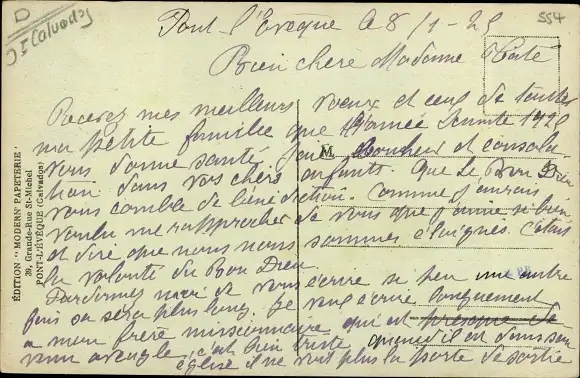 D
(Calvados)
554
Pont-l'Evêque le 8/1-25
Bien chère Madame
Recevez mes meilleurs voeux et ceux de toute
ma petite famille que l'année 1925
vous donne santé, Bonheur et consola
tion dans vos chers enfants. Que le Bon Dieu
vous comble de bénédiction. Comme j'aurais
voulu me rapprocher de vous que j'aime si bien
et dire que nous nous sommes éloignés. C'était
la volonté du Bon Dieu.
Pardonnez moi de vous écrire si peu une autre
fois sa sera plus long. Je vais écrire longuement
a mon frère missionnaire qui est presque
aveugle, c'est bien triste quand il est dans son
église il ne voit plus la porte de sortie
M
ÉDITION "MODERN PAPETERIE"
20, Grande-Rue St-Michel
PONT-L'ÉVÊQUE (Calvados)